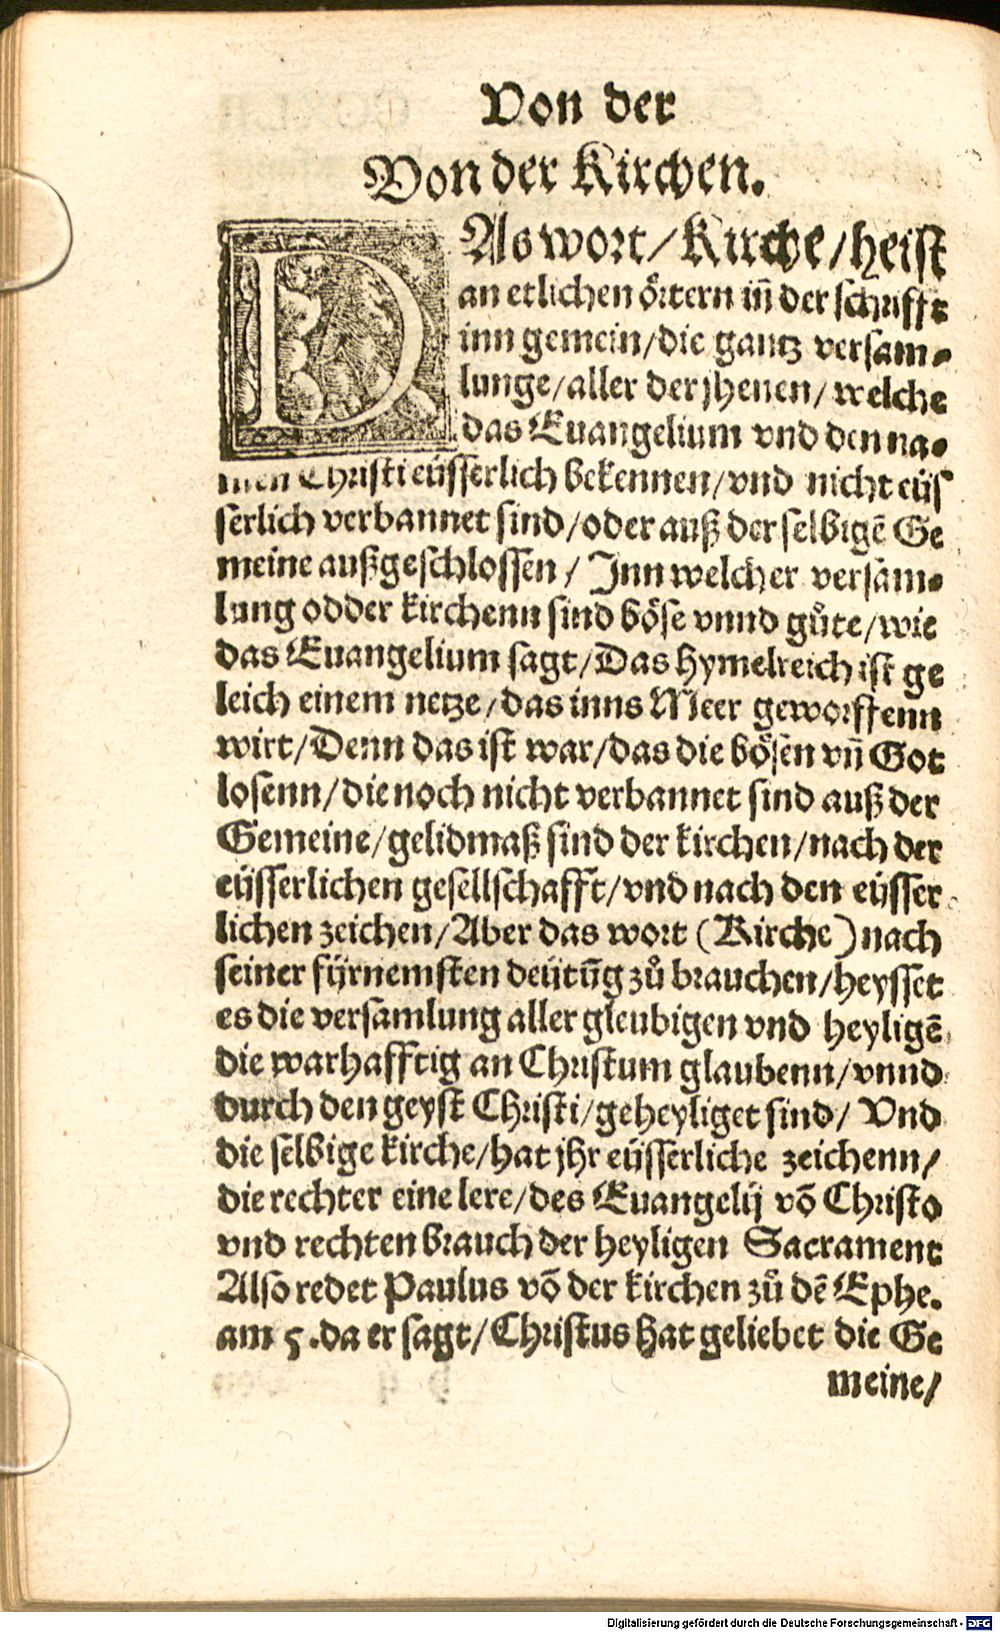 Von der
Von der Kirchen.
DAs wort/ Kirche/ heist
an etlichen örtern iñ der schrifft
inn gemein/die gantz versam⸗
lunge/aller der jhenen/ welche
das Euangelium vnd den na⸗
men Christi eüsserlich bekennen/vnd nicht eüs
serlich verbannet sind/oder auß der selbigẽ Ge
meine außgeschlossen/ Jnn welcher versam⸗
lung odder kirchenn sind böse vnnd gůte/wie
das Euangelium sagt/Das hymelreich ist ge
leich einem netze/das inns Meer geworffenn
wirt/Denn das ist war/das die bösen vñ Got
losenn/die noch nicht verbannet sind auß der
Gemeine/gelidmaß sind der kirchen/nach der
eüsserlichen gesellschafft/vnd nach den eüsser
lichen zeichen/Aber das wort (Kirche) nach
seiner fürnemsten deütũg zů brauchen/heysset
es die versamlung aller gleubigen vnd heyligẽ
die warhafftig an Christum glaubenn/vnnd
durch den geyst Christi/geheyliget sind/ Vnd
die selbige kirche/hat jhr eüsserliche zeichenn/
die rechter eine lere/des Euangelij võ Christo
vnd rechten brauch der heyligen Sacrament
Also redet Paulus võ der kirchen zů dẽ Ephe.
am 5.da er sagt/Christus hat geliebet die Ge
meine/
Digitalisierung gefördert durch die Deutsche Forschungsgemeinschaft - DFG